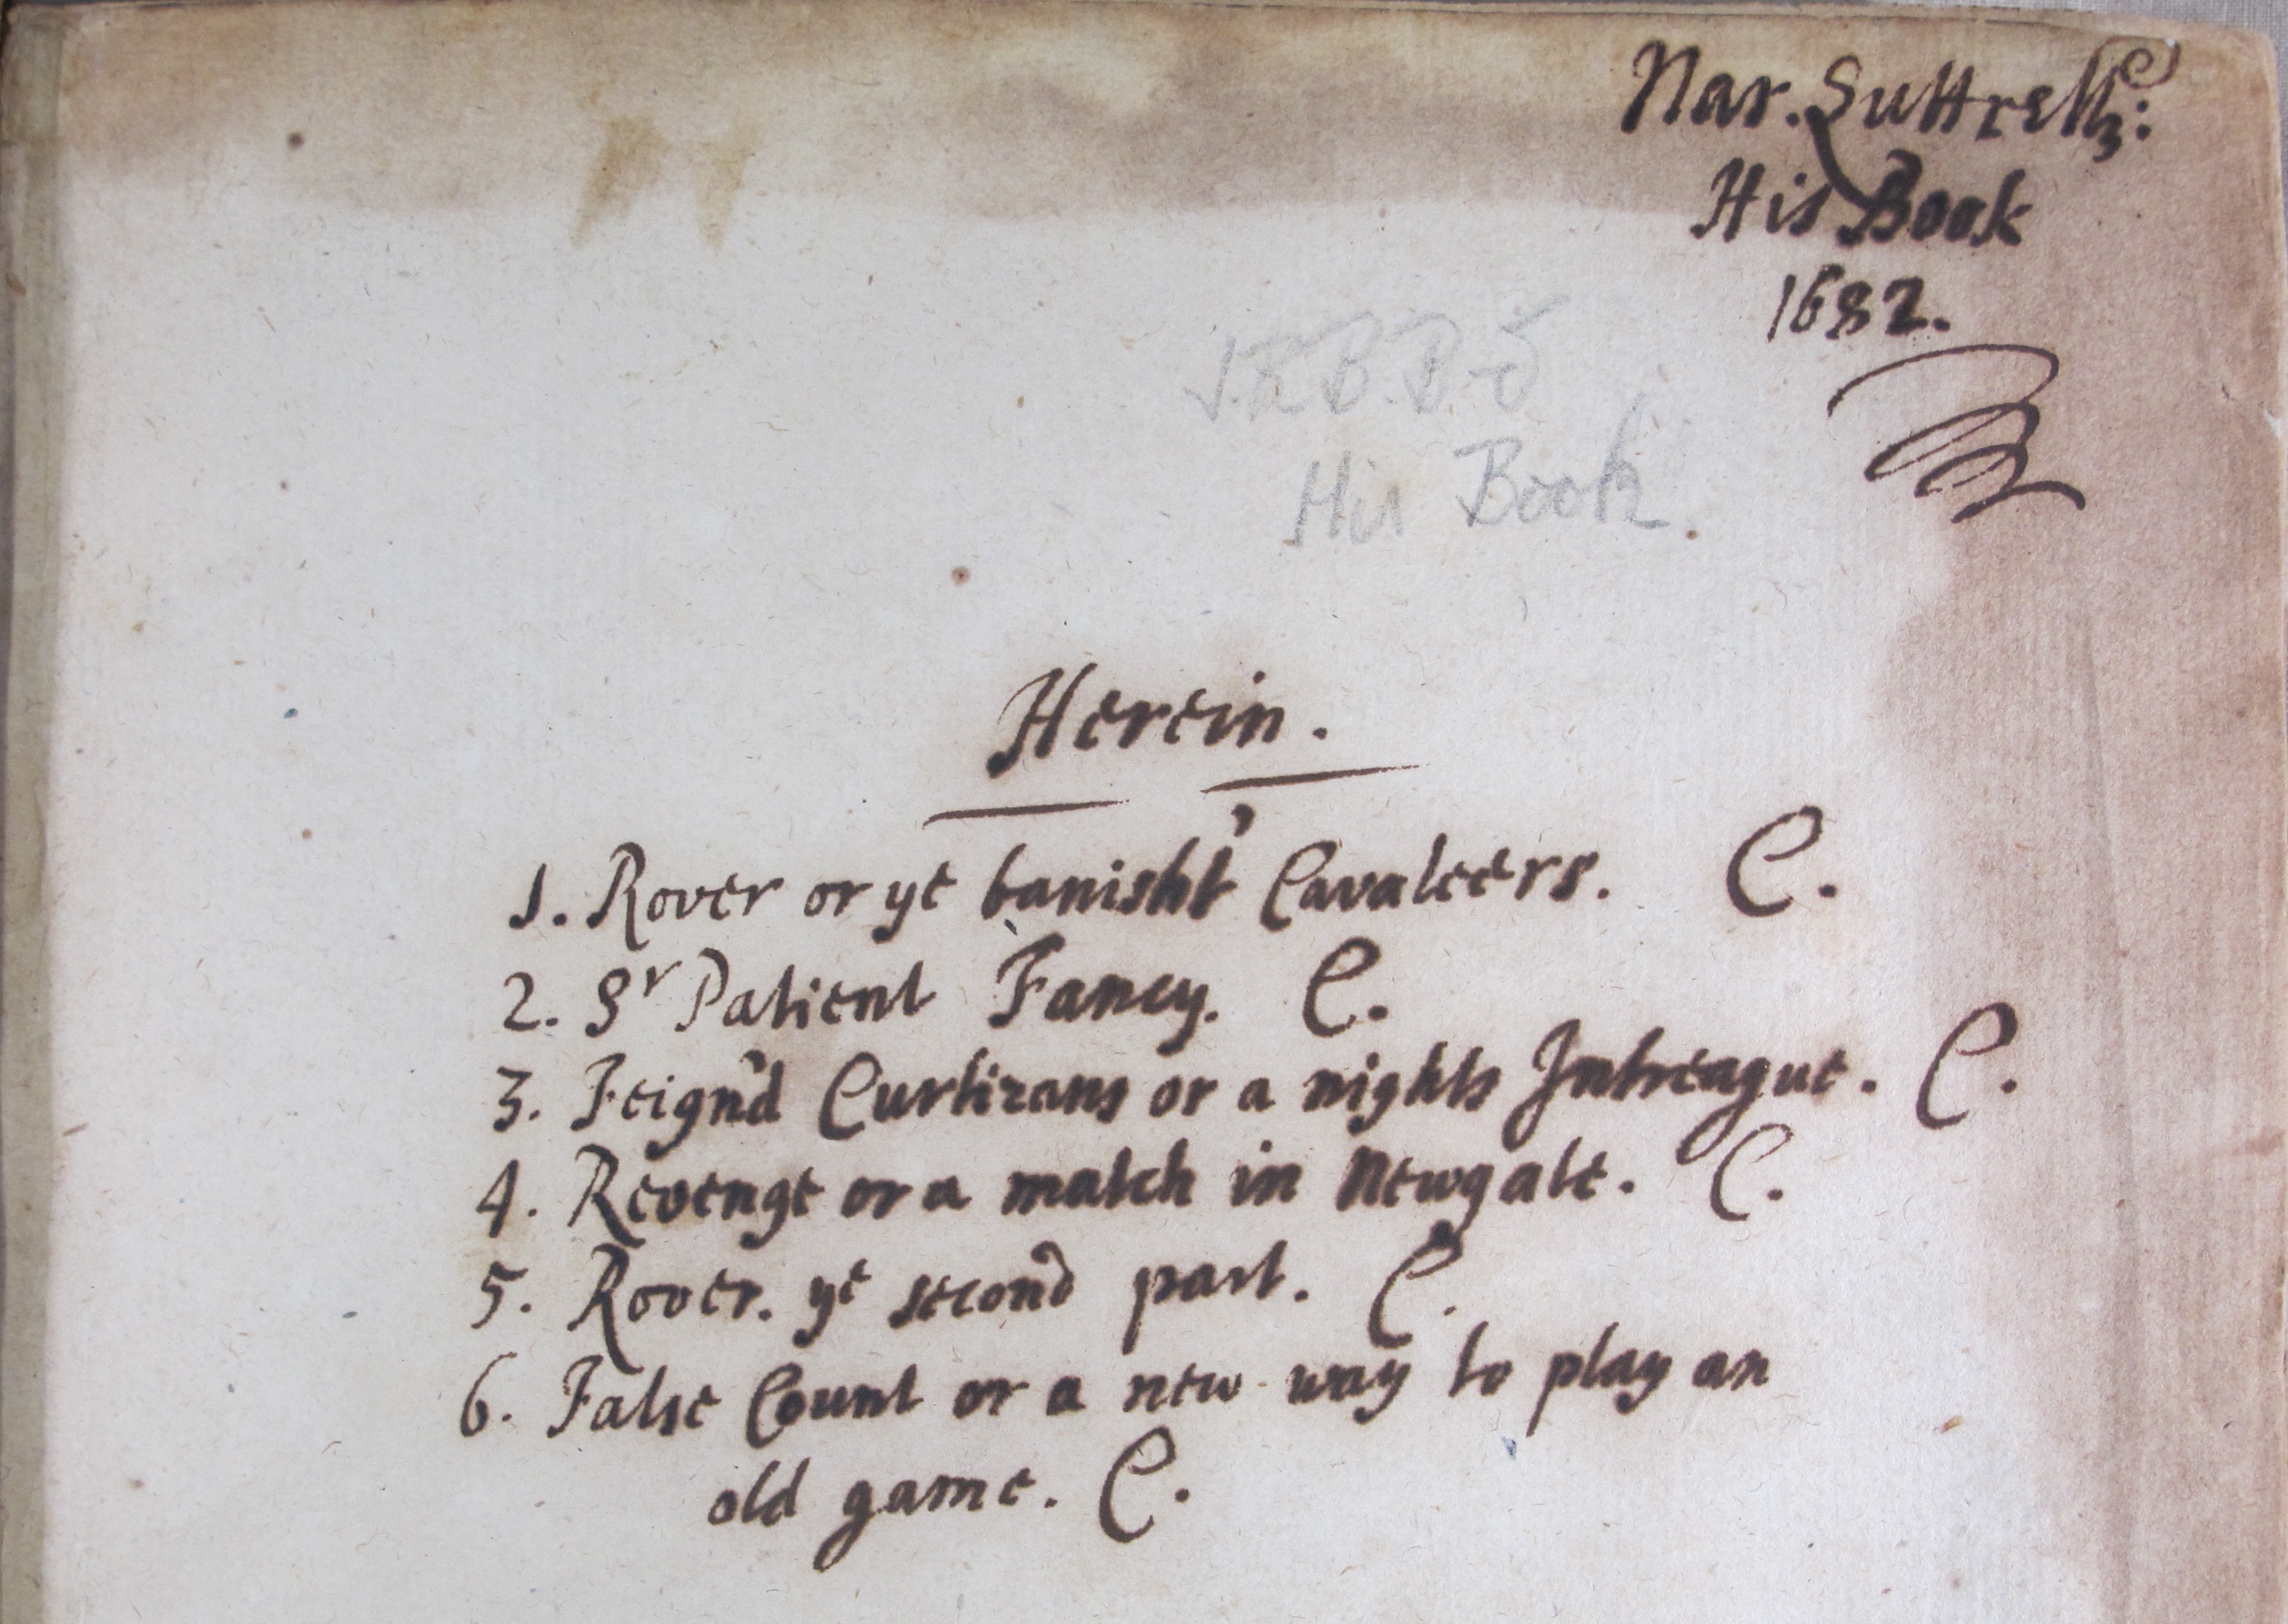 Nar. Luttrell:
His Book
1682.
His Book.
Herein.
1. Rover or ye banisht' Cavaleers. C.
2. Sr Patient Fancy. C.
3. Feign'd Curtizans or a nights Intreague. C.
4. Revenge or a match in Newgate. C.
5. Rover. ye second part. C.
6. False Count or a new way to play an
old game. C.